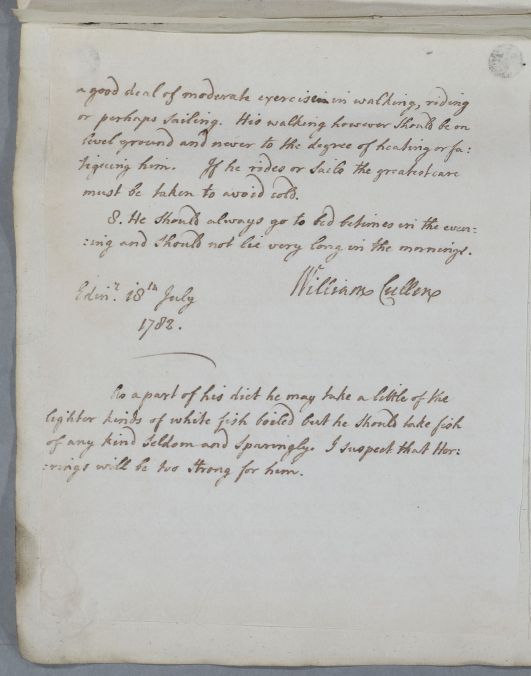 a good deal of moderate exercise in walking, riding
or perhaps sailing. His walking however should be on
level ground and never to the degree of heating or fa:
tigueing him. If he rides or sails the greatest care
must be taken to avoid cold.
8. He should always go to bed betimes in the even:
:ing and should not lie very long in the mornings.
Edin.r 18th July
William Cullen
1782.
As a part of his diet he may take a little of the
lighter kinds of white fish boiled but he should take fish
of any kind seldom and sparingly. I suspect that Her:
:rings will be too strong for him.